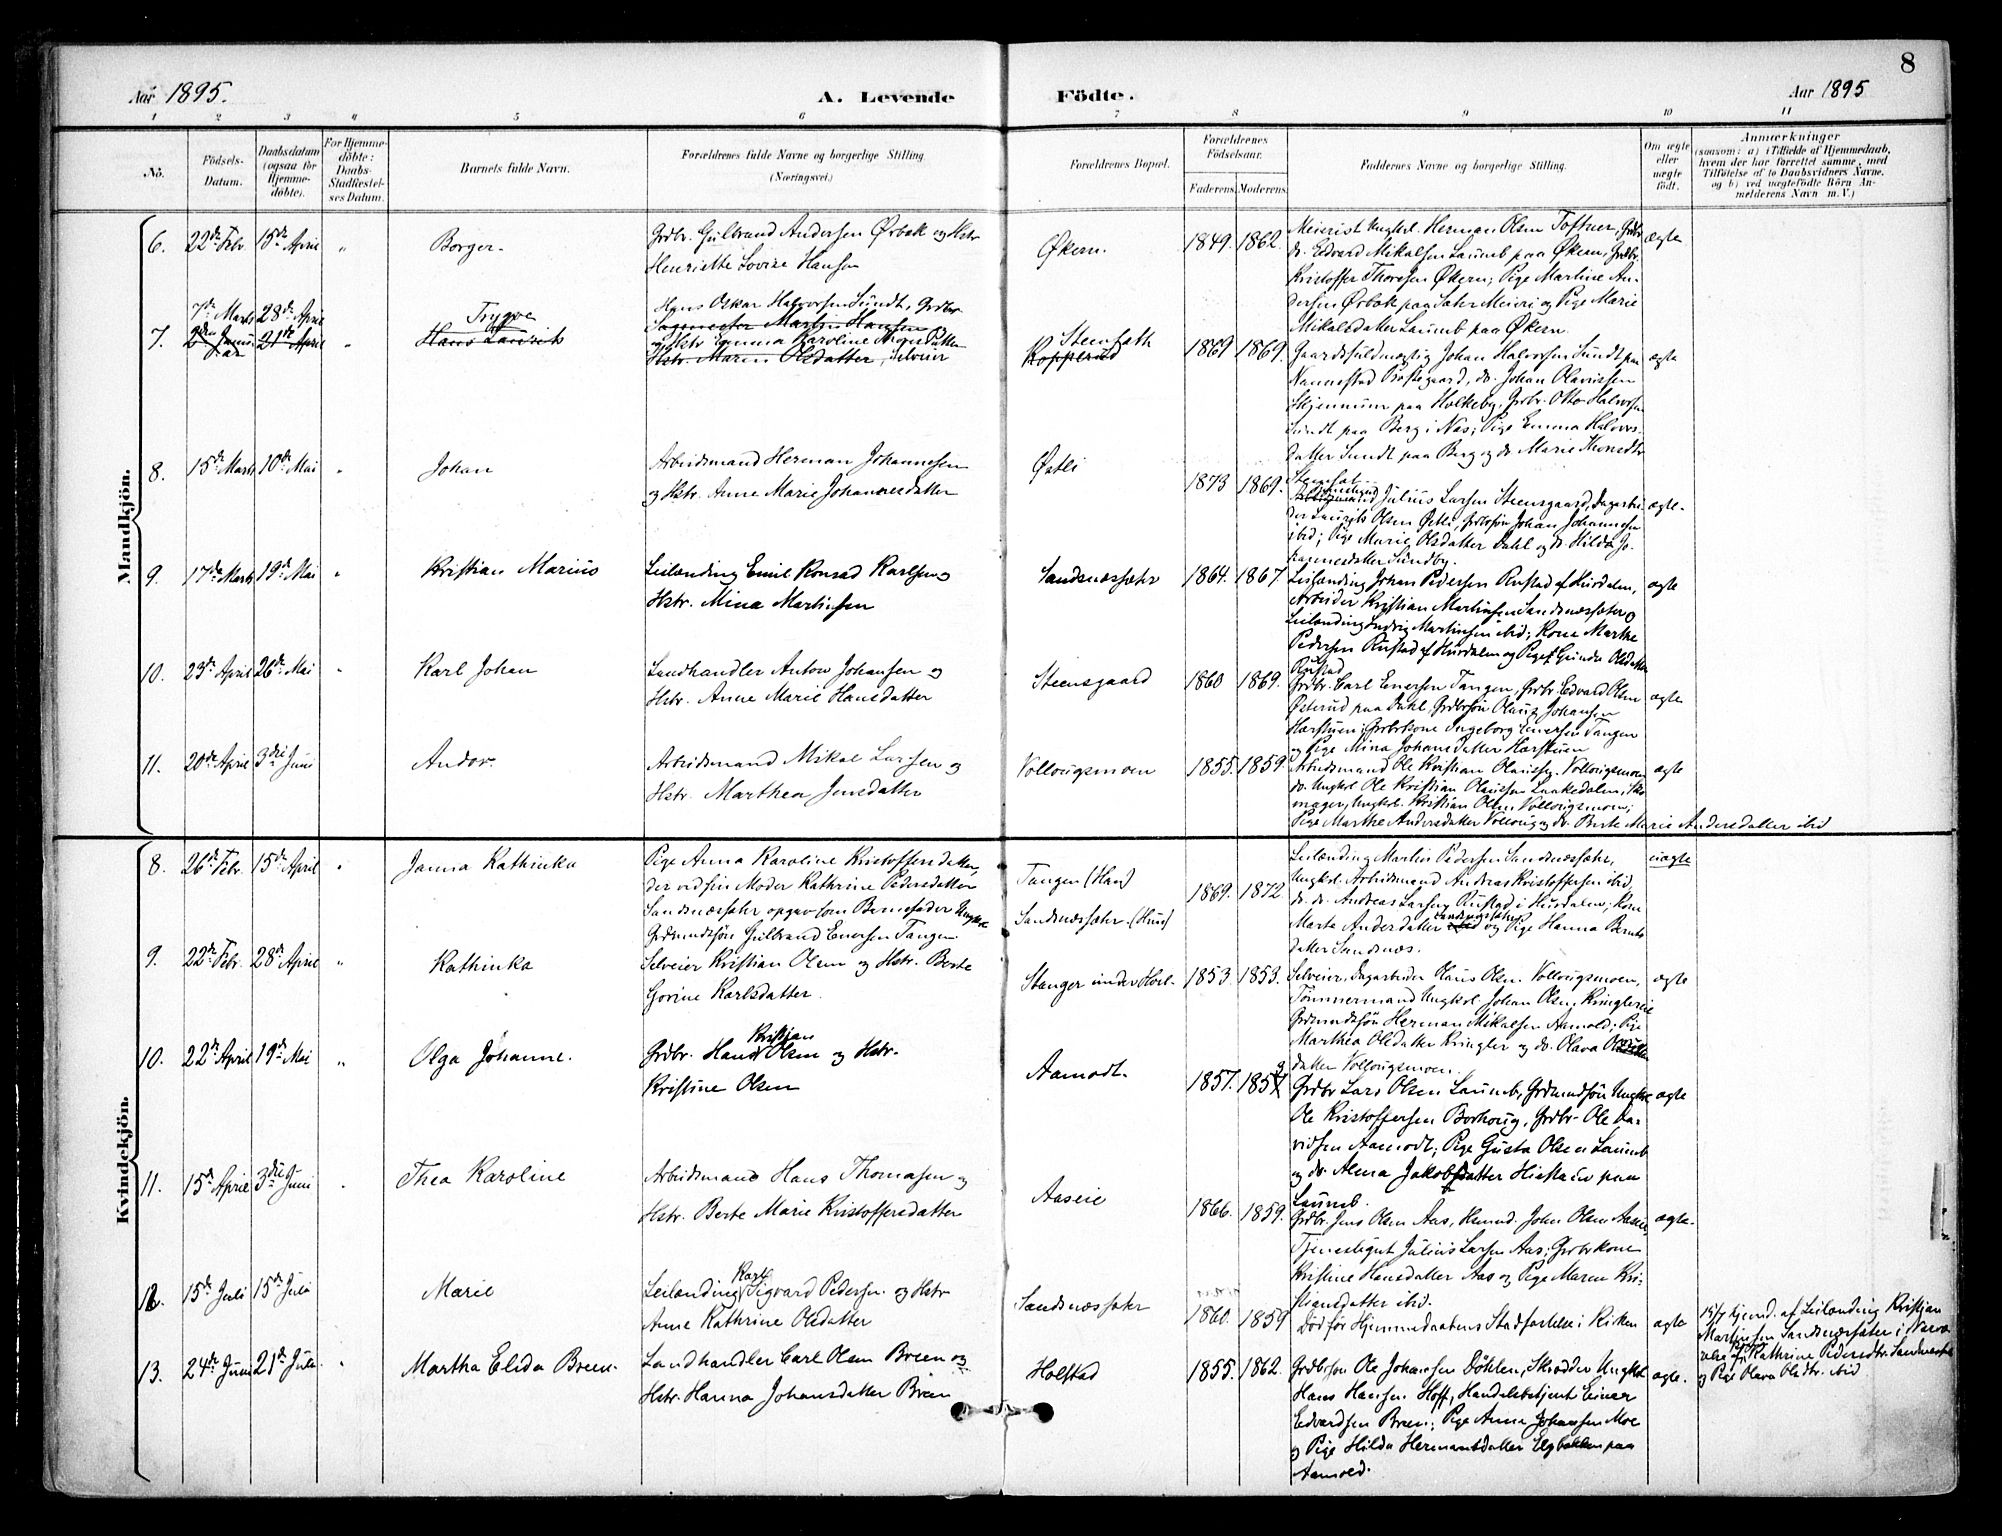 8
Aar 1895.
A. Levende
Födte.
Aar 1895
1 2 3 4 5 6 7 8 9 10 11
No.
Födsels-
Datum.
Daabsdatum
(ogsaa for
Hjemme-
döbte).
For Hjemme-
döbte:
Daabs-
Stadfæstel-
ses Datum.
Barnets fulde Navn.
Forældrenes fulde Navne og borgerlige Stilling
(Næringsvei.)
Forældrenes Bopæl.
Forældrenes
Födselsaar.
Faderens. Moderens.
Faddernes Navne og borgerlige Stilling.
Om ægte
eller
uægte
födt.
Anmærkninger
(saasom: a) i Tilfælde af Hjemmedaab,
hvem der har forrettet samme, med
Tilföielse af to Daabsvidners Navne.
og b) ved uægtefödte Börn An-
melderens Navn m. V.)
Mandkjön.
6. 22de Febr. 15de April " Borger.
Grdbr. Gulbrand Andersen Ørbak og Hstr.
Henriette Lovise Hansen
Økern. 1849. 1862.
Meierist Ungkrl. Herman Olsen Toftner, Grdbr.
do. Edvard Mikalsen Laumb paa Økern, Grdbr.
Kristoffer Thoresen Økern; Pige Martine An-
dersen Ørbak paa Sahr Meieri og Pige Marie
Mikalsdatter Laumb paa Økern.
ægte
7. 7de Marts 28de April
21de April " Trygve
Hans Laurits
Hans Oskar Halvorsen Sundt, Grdbr.
Sagmester Martin Hansen
og Hstr. Emma Karoline
Hstr. Maren Olsdatter, Selveier
Kopperud
1869 1869.
Gaardsfuldmægtig Johan Halvorsen Sundt paa
Nannestad Præstegaard, do. Johan Olavussen
Skjennum paa Holkeby, Grdbr. Otto Halvorsen
Sundt paa Berg i Næs; Pige Emma Halvors-
datter Sundt paa Berg og do. Marie
ægte
8. 15de Marts 10de Mai " Johan
Arbeidsmand Herman Johannesen
og Hstr. Anne Marie Johannesdatter
Østli
1873 1869.
Julius Larsen Steensgaard, Dagarbei-
der Laurits Olsen Østli, Grdbrsøn Johan Johannesen
ibid; Pige Marie Olsdatter Dahl og do. Hilda Jo-
hannesdatter Sundby.
ægte.
9. 17de Marts 19de Mai " Kristian Marius
Leilænding Emil Konrad Karlsen og
Hstr. Mina Martinsen
Sandsnæssæter 1864. 1867
Leilænding Johan Pedersen Rustad af Hurdalen,
Arbeider Kristian Martinsen Sandsnæssæter og
Leilænding Ludvig Martinsen ibid; Kone Marthe
Pedersen Rustad af Hurdalen og Pige Gunda Olsdatter
Rustad
ægte
10. 23de April 26de Mai " Karl Johan
Landhandler Anton Johansen og
Hstr. Anne Marie Hansdatter
Steensgaard 1860 1869.
Grdbr. Carl Enersen Tangen, Grdbr. Edvard Olsen
Østerud paa Dahl, Grdbrsøn Olaus Johansen
Hærstuen; Grdbrkone Ingeborg Enersen Tangen
og Pige Mina Johansdatter Hærstuen
ægte
11. 20de April 3die Juni Andor.
Arbeidsmand Mikal Larsen og
Hstr. Marthea Jensdatter
Vollougsmoen 1855. 1859.
Arbeidsmand Ole Kristian Olaussen Vollougsmoen,
do. Ungkrl. Ole Kristian Olaussen Laakedalen, Sko-
mager, Ungkrl. Kristian Olsen Vollougsmoen;
Pige Marthe Andersdatter Volloug og do. Berte Marie Andersdatter ibid
ægte
Kvindekjön.
8. 26de Febr. 15de April " Janna Kathinka
Pige Anna Karoline Kristoffersdatter,
der ved sin Moder Kathrine Pedersdatter
Sandsnæssæter opgav som Barnefader Ungkrl.
Grdmandssøn Gulbrand Enersen Tangen
Tangen (Han)
Sandsnæssæter (Hun)
1869. 1872
Leilænding Martin Pedersen Sandsnæssæter,
Ungkrl. Arbeidsmand Andreas Kristoffersen ibid,
do. do. Andreas Larsen Rustad i Hurdalen; Kone
Marte Andersdatter ibid og Pige Hanna Bernts-
datter Sandsnæs.
uægte
9. 22de Febr. 28de April " Kathinka
Selveier Kristian Olsen og Hstr. Berte
Gorine Karlsdatter.
Stanger under Hol-
1853 1853.
Selveier, Dagarbeider Olaus Olsen Vollougsmoen,
Tømmermand Ungkrl. Johan Olsen Kringlereie
Grdmandssøn Herman Mikalsen Aamold; Pige
Marthea Olsdatter Kringler og do. Olava Ols-
datter Vollougsmoen.
ægte
10. 22de April 19de Mai " Olga Johanne.
Grdbr. Hans Kristian Olsen og Hstr.
Kristine Olsen
Aamodt. 1857. 1859
Grdbr Lars Olsen Laumb, Grdmandssøn Ungkrl
Ole Kristoffersen Borhoug, Grdbr. Ole Da-
vidsen Aamodt; Pige Gusta Olsen Laumb
og do. Alma Jakobsdatter paa
Laumb.
ægte
11. 15de April 3die Juni . Thea Karoline
Arbeidsmand Hans Thomasen og
Hstr. Berte Marie Kristoffersdatter
Aaseie 1866. 1859.
Grdbr. Jens Olsen Aas, Hsmd. John Olsen Aaseie,
Tjenestegut Julius Larsen Aas; Grdbrkone
Kristine Hansdatter Aas og Pige Maren Kri-
stiansdatter ibid.
ægte.
12. 15de Juli 15de Juli Marie
Leilænding Karl Sigvard Pedersen og Hstr.
Anne Kathrine Olsdatter
Sandsnæssæter 1860. 1859
Død før Hjemmedaabens Stadfæstelse i Kirken
ægte
15/7 hjemd. af Leilænding Kristian
Martinsen Sandsnæssæter i Nærvæ-
relse af Kathrine Pedersdtr. Sandsnæssæter
og Pige Olava Olsdtr. ibid
13. 24de Juni 21de Juli " Martha Elida Breen.
Landhandler Carl Olsen Breen og
Hstr. Hanna Johansdatter Breen
Holstad 1855. 1862.
Grdbrsøn Ole Johansen Døhlen, Skrædder Ungkrl
Hans Hansen Hoff, Handelsbetjent Einar
Edvardsen Breen; Pige Anna Johansen Moe
og Pige Hilda Hermansdatter Elgbakken paa
Aamold.
ægte.